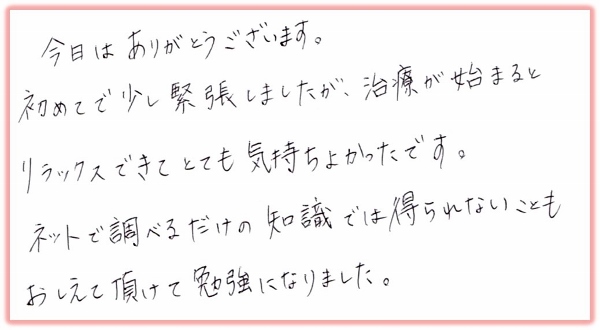 今日は ありがとうございます。
初めてで少し緊張しましたが、治療が始まると
リラックスできてとても気持ちよかったです。
ネットで調べるだけの知識では得られないことも
おしえて頂けて勉強になりました。